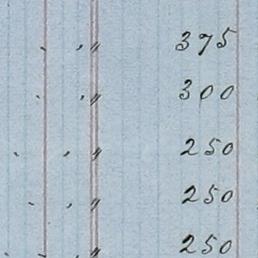 " 375
" 300
" 250
" 250
" 250